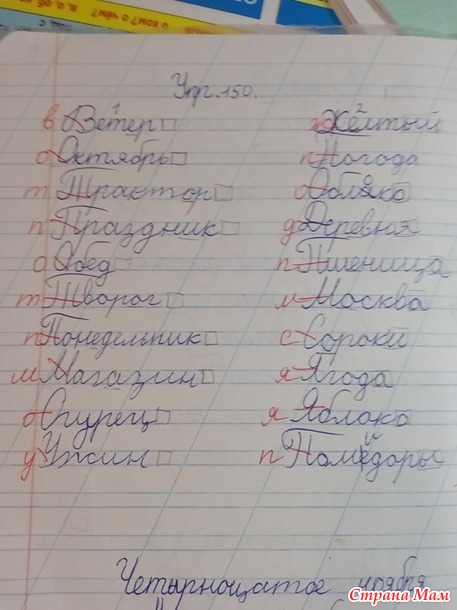 Упр. 150.
в Ветер
о Октябрь
т Трактор
п Праздник
о Обед
т Творог
п Понедельник
м Магазин
о Огурец
у Ужин
ж Жёлтый
п Погода
о Облако
д Деревня
п Пшеница
м Москва
с Сороки
я Ягода
я Яблоко
п Помедоры
Четырнощатое ноября
Страна Мам